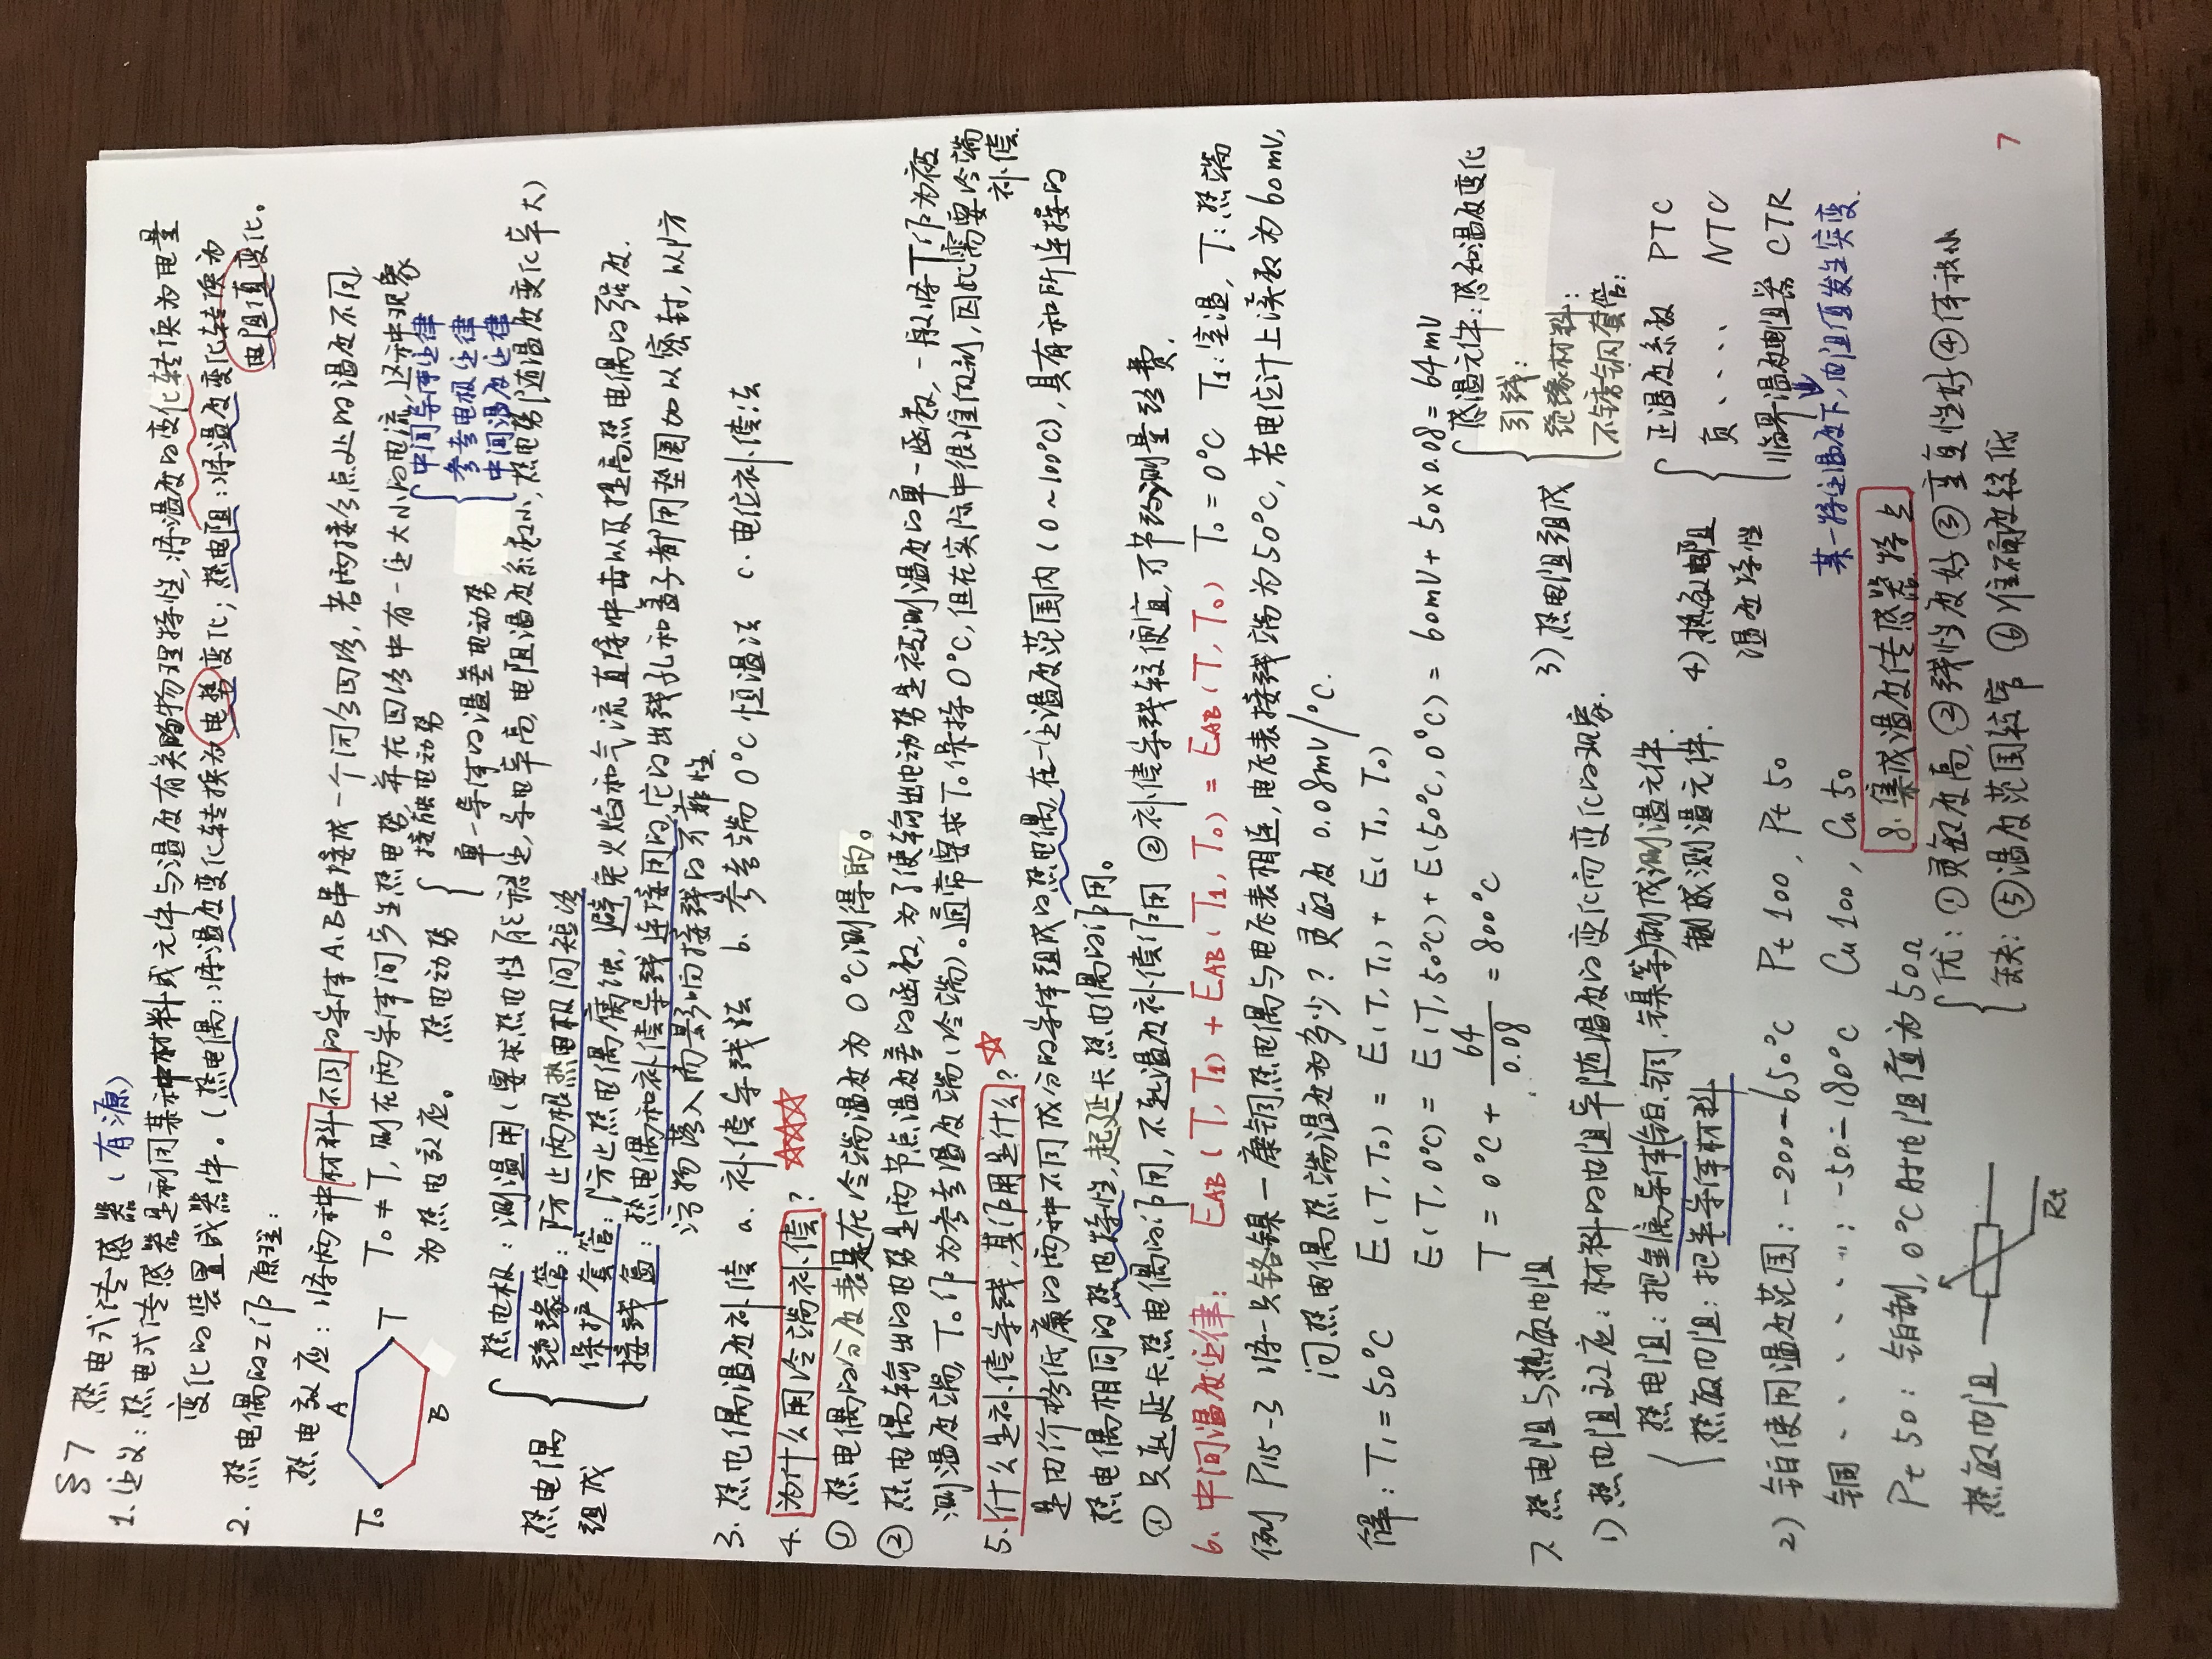 §7 热电式传感器（有源）
1. 定义：热电式传感器是利用某种材料或元件与温度有关的物理特性，将温度的变化转换为电量
变化的装置或器件。（热电偶：将温度变化转换为电势变化；热电阻：将温度变化转换为
电阻值变化。
2. 热电偶的工作原理：
热电效应：将两种材料不同的导体A、B串接成一个闭合回路，若两接合点处的温度不同
A
T₀ T
B
T₀≠T，则在两导体间产生热电势，并在回路中有一定大小的电流，这种现象
为热电效应。 热电动势
接触电动势
单一导体的温差电动势
中间导体定律
参考电极定律
中间温度定律
热电偶组成
热电极：测温用（要求热电性能稳定，导电率高，电阻温度系数小，热电势随温度变化率大）
绝缘管：防止两根热电极间短路
保护套管：防止热电偶腐蚀，避免火焰和气流直接冲击以及提高热电偶的强度.
接线盒：热电偶和补偿导线连接用的，它的出线孔和盖子都用垫圈加以密封，以防
污物落入而影响接线的可靠性.
3. 热电偶温度补偿 a. 补偿导线法 b. 参考端0°C恒温法 c. 电位补偿法
4. 为什么用冷端补偿？ ☆☆☆
① 热电偶的分度表是在冷端温度为0°C测得的。
② 热电偶输出的电势是两节点温度差的函数，为了使输出电动势是被测温度的单一函数，一般将T作为被
测温度端，T₀作为参考温度端（冷端）。通常要求T₀保持0°C，但在实际中很难做到，因此需要冷端
补偿.
5. 什么是补偿导线，其作用是什么？☆
是由价格低廉的两种不同成分的导体组成的热电偶，在一定温度范围内（0~100°C），具有和所连接的
热电偶相同的热电特性，起延长热电偶的作用。
① 只起延长热电偶的作用，不起温度补偿作用 ② 补偿导线较便宜，可节约测量经费.
6. 中间温度定律： EAB(T,T₁)+EAB(T₁,T₀)=EAB(T,T₀) T₀=0°C T₁:室温，T:热端
例 P115-3 将一只铬镍－康铜热电偶与电压表相连，电压表接线端为50°C，若电位计上读数为60mV，
问热电偶热端温度为多少？灵敏度 0.08mV/°C.
解：T₁=50°C E(T,T₀)=E(T,T₁)+E(T₁,T₀)
E(T,0°C)=E(T,50°C)+E(50°C,0°C)=60mV+50×0.08=64mV
T=0°C+64/0.08=800°C
7. 热电阻与热敏电阻
1) 热电阻效应：材料的电阻率随温度的变化而变化的现象.
热电阻：把金属导体（铂、铜、镍等）制成测温元件.
热敏电阻：把半导体材料 制成测温元件.
2) 铂使用温度范围：-200-650°C Pt100, Pt50
铜 · · · · · · 〃：-50-180°C Cu100, Cu50
Pt50：铂制，0°C时电阻值为50Ω
热敏电阻
Rt
3) 热电阻组成
感温元件：感知温度变化
引线：
绝缘材料：
不锈钢套管：
4) 热敏电阻
温度特性
正温度系数 PTC
负 · · · · NTC
临界温度电阻器 CTR
某一特定温度下，电阻值发生突变.
8. 集成温度传感器特点
优：①灵敏度高，②线性度好 ③重复性好 ④体积小
缺：⑤温度范围较窄 ⑥准确度较低
7